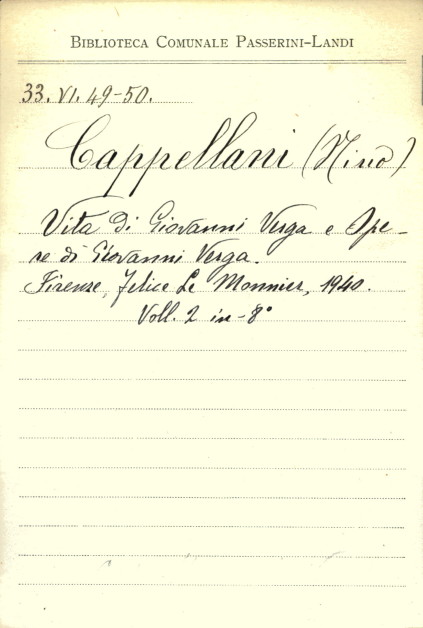 BIBLIOTECA COMUNALE PASSERINI-LANDI
33. VI. 49-50.
Cappellani (Nino)
Vita di Giovanni Verga e Ope-
re di Giovanni Verga.
Firenze, Felice Le Monnier, 1940.
Voll. 2 in-8°